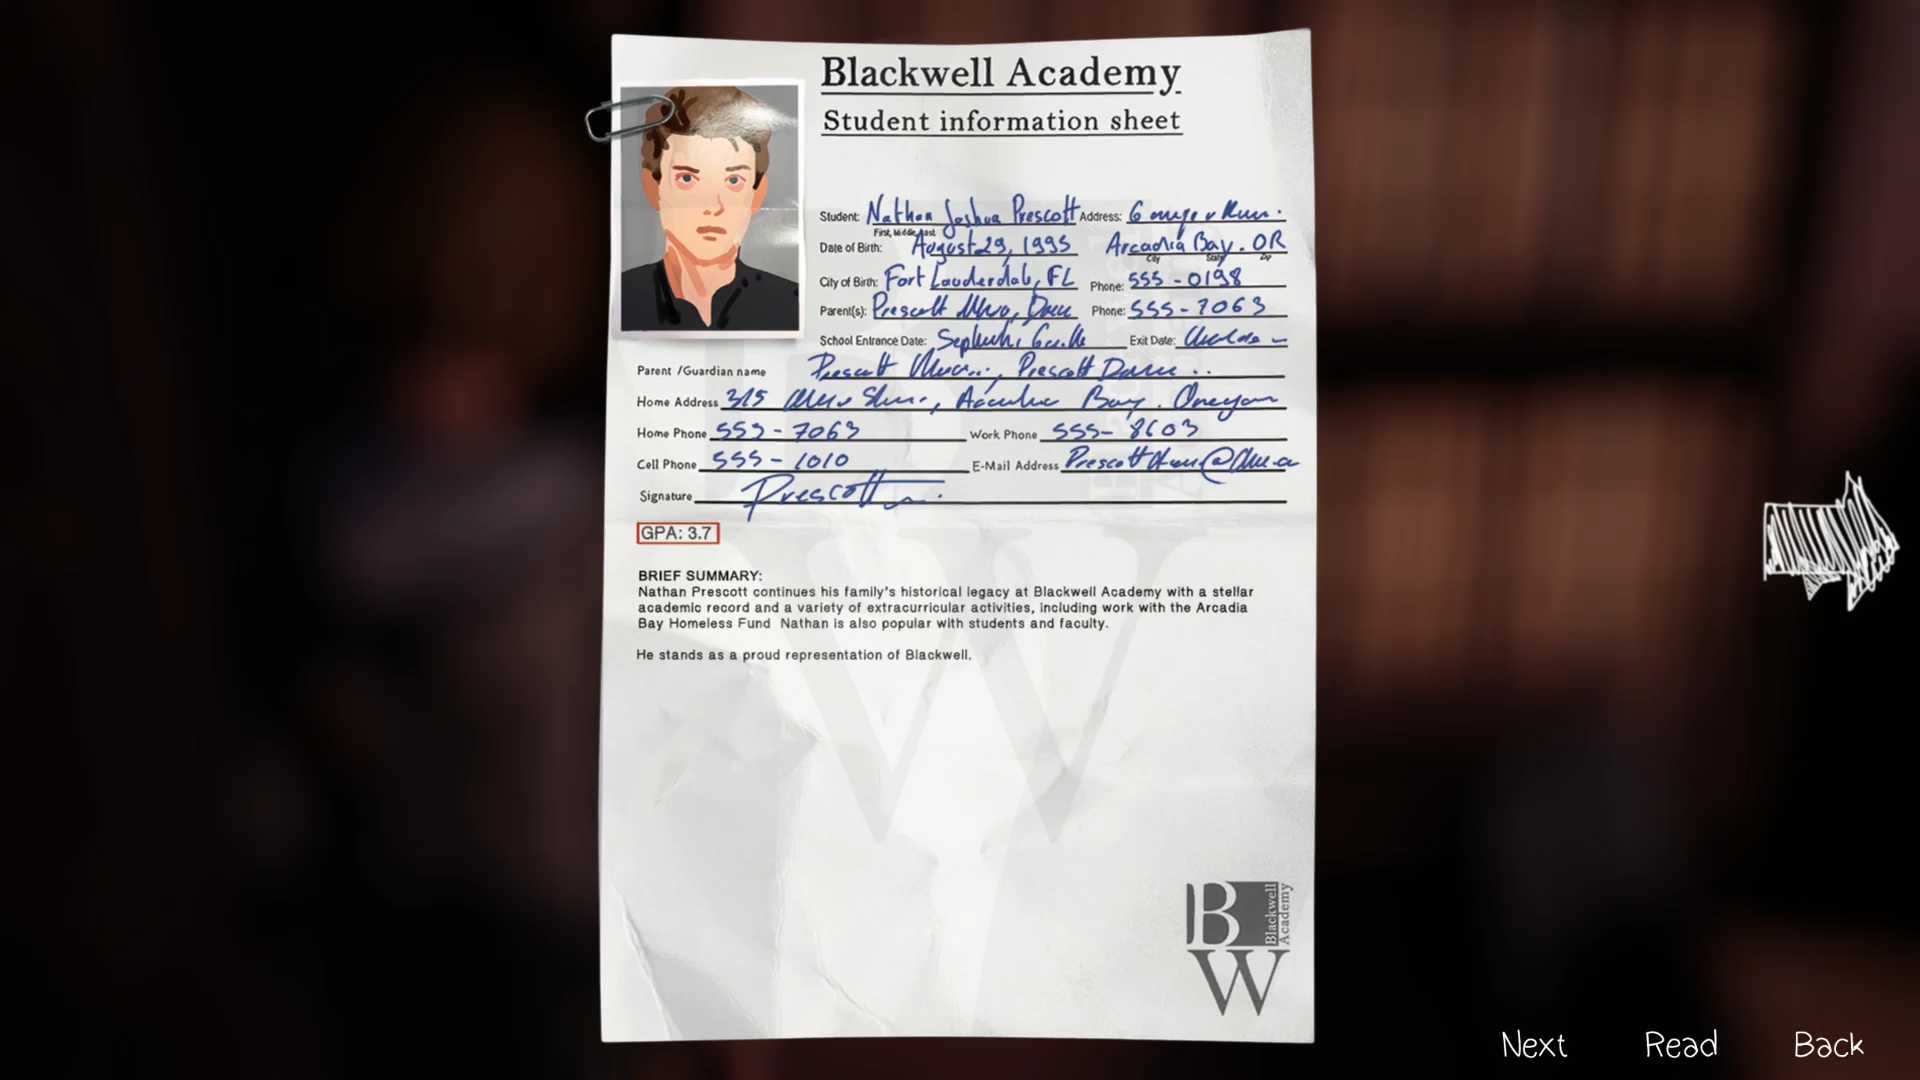 Blackwell Academy
Student information sheet
Student: Nathan Joshua Prescott Address: 6
First, Middle, Last
Date of Birth: August 29, 1995 Arcadia Bay. OR
City State Zip
City of Birth: Fort Lauderdale, FL Phone: 555-0198
Parent(s): Prescott Phone: 555-7063
School Entrance Date: Exit Date:
Parent /Guardian name Prescott Prescott
Home Address 315 Bay. Oregon
Home Phone 555-7063 Work Phone 555-8603
Cell Phone 555-1010 E-Mail Address Prescott
Signature Prescott
GPA: 3.7
BRIEF SUMMARY:
Nathan Prescott continues his family's historical legacy at Blackwell Academy with a stellar
academic record and a variety of extracurricular activities, including work with the Arcadia
Bay Homeless Fund Nathan is also popular with students and faculty.
He stands as a proud representation of Blackwell.
B
Blackwell
Academy
W
Next Read Back